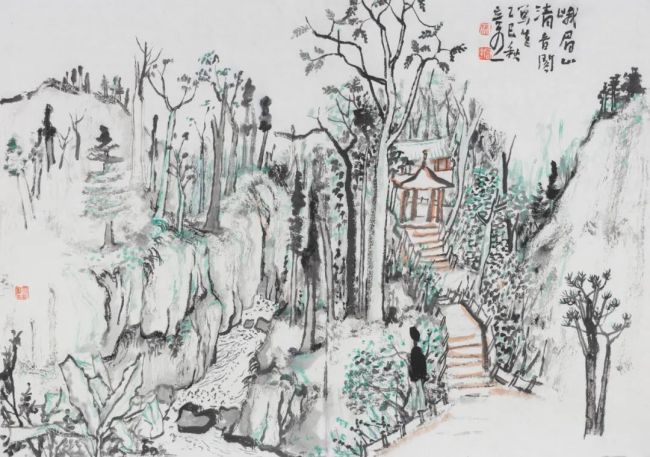 峨眉山
清音阁
写生
乙巳秋